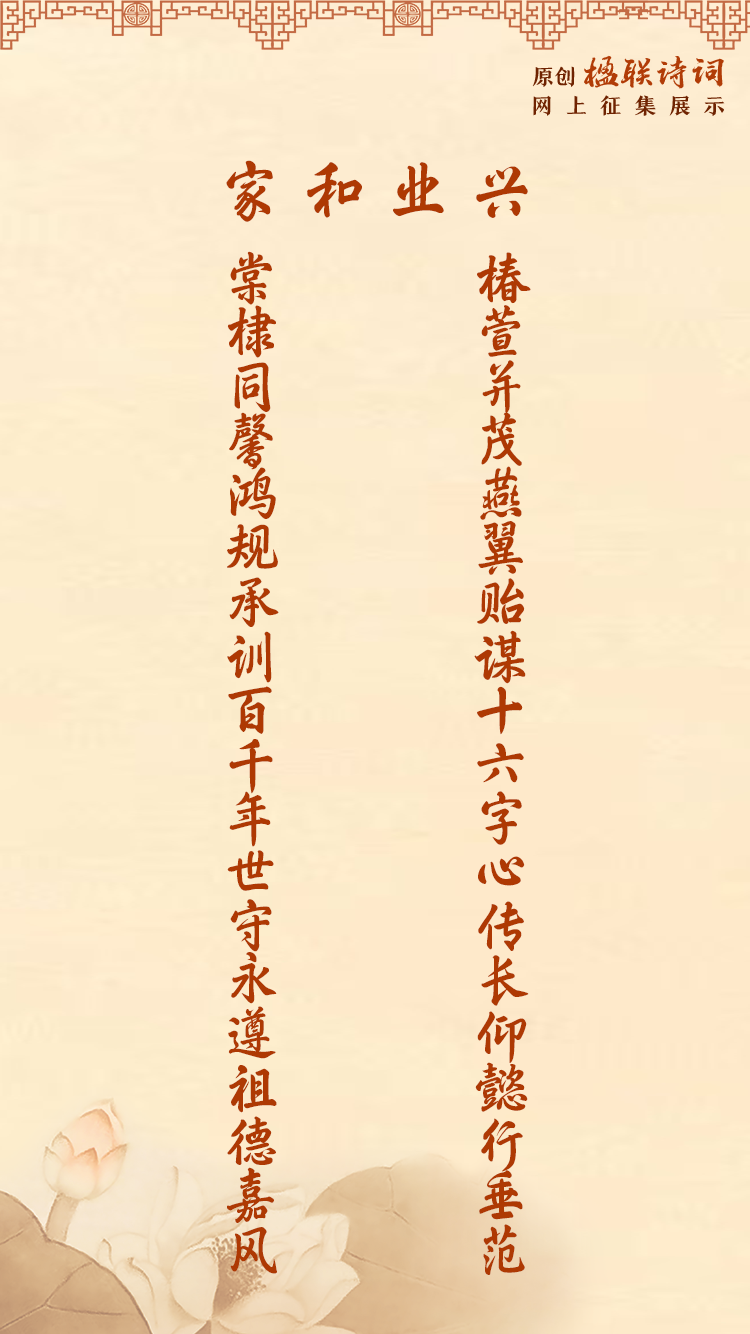 原创 楹联诗词
网上征集展示
家和业兴
椿萱并茂燕翼贻谋十六字心传长仰懿行垂范
棠棣同馨鸿规承训百千年世守永遵祖德嘉风